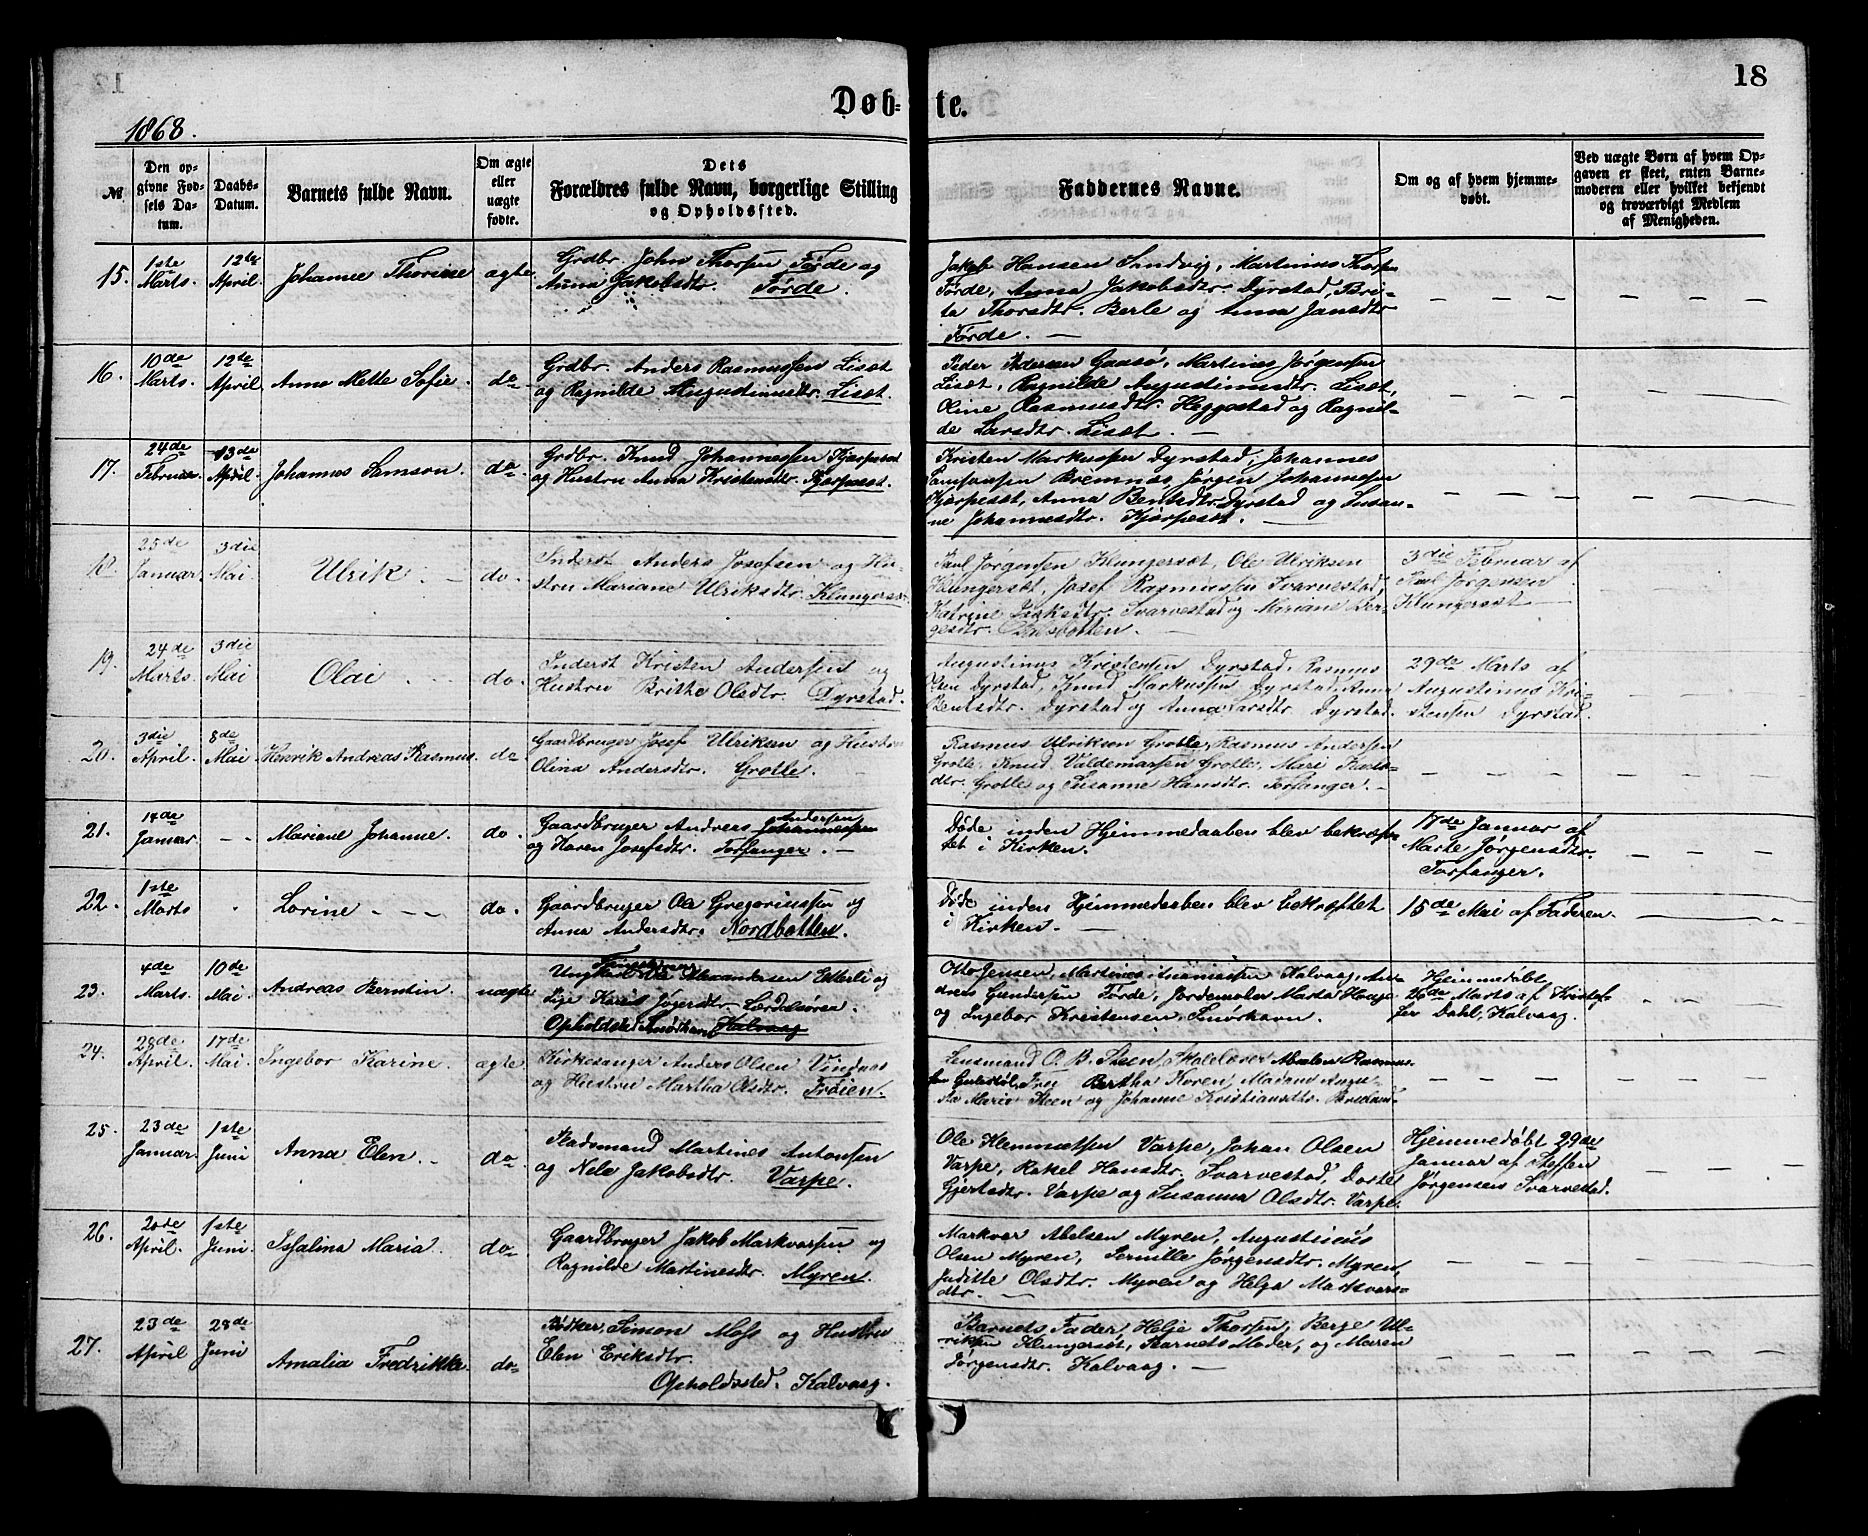 18
Døb- te.
1868.
№
Den op-
givne Fød-
sels Da-
tum.
Daabs-
Datum.
Barnets fulde Navn.
Om ægte
eller
uægte
fødte.
Dets
Forældres fulde Navn, borgerlige Stilling
og Opholdssted.
Faddernes Navne.
Om og af hvem hjemme-
døbt.
Ved uægte Børn af hvem Op-
gaven er skeet, enten Barne-
moderen eller hvilket bekjendt
og troværdigt Medlem
af Menigheden.
15.
1ste
Marts.
12te
April
Johanne Thorine
ægte
Grdbr. John Thorsen Førde og
Anna Jakobsdtr. Førde.
Jakob Hansen Sandvig, Martinus Thorsen
Førde, Anna Jakobsdtr. Dyrstad, Bri-
te Thorsdtr. Berle og Anna Jansdtr
Førde.
16.
10de
Marts.
12te
April
Anne Mette Sofie.
do
Grdbr. Anders Rasmussen Lisæt
og Ragnilde Augustinusdtr. Lisæt.
Peder Pedersen Gaasø, Martinus Jørgensen
Lisæt, Ragnilde Augustinusdtr. Lisæt,
Oline Rasmusdtr. Heggestad og Ragnil-
de Larsdtr. Lisæt.
17.
24de
Februar.
13de
April.
Johannes Samson.
do.
Grdbr. Knud Johannessen Kjærpesæt
og Hustru Anna Kristensdtr. Kjærpesæt.
Kristen Markussen Dyrstad, Johannes
Samsonsen Bremnæs, Jørgen Johannesen
Kjærpesæt, Anna Bentsdtr. Dyrstad og Susan-
ne Johannesdtr. Kjærpesæt.
18.
25de
Januar.
3die
Mai.
Ulrik.
do.
Inderst Anders Josefsen og Hu-
stru Mariane Ulriksdtr. Klungersæt
Paul Jørgensen Klungersæt, Ole Ulriksen
Klungersæt, Josef Rasmussen Svarvestad,
Katrine Svarvestad og Mariane Bør-
gesdtr.
3die Februar af
Paul Jørgensen
Klungersæt
19.
24de
Marts.
3die
Mai
Olai
do.
Inderst Kristen Andersen og
Hustru Britte Olsdtr. Dyrstad.
Augustinus Kristensen Dyrstad, Rasmus
Olsen Dyrstad, Knud Markussen Dyrstad, Anna
Bentsdtr. Dyrstad og Anna Larsdtr Dyrstad.
29de Marts af
Augustinus Kri-
stensen Dyrstad.
20.
3die
April.
8de
Mai
Henrik Andreas Rasmus.
do.
Gaardbruger Josef Ulriksen og Hustru
Olina Andersdtr. Grotle.
Rasmus Ulriksen Grotle, Rasmus Andersen
Grotle, Knud Valdemarsen Grotle, Mari
dtr. Grotle og Susanne Hansdtr. Torfanger.
21.
14de
Januar.
Mariane Johanne.
do.
Gaardbruger Andreas Johannessen Andersen
og Karen Josefsdtr. Torfanger.
Døde inden Hjemmedaaben blev bekræf-
tet i Kirken.
17de Januar af
Marte Jørgensdtr.
Torfanger.
22.
1ste
Marts
Lorine
do.
Gaardbruger Ole Gregoriussen og
Anna Andersdtr. Nordbotten.
Døde inden Hjemmedaaben blev bekræftet
i Kirken.
15de Mai af Faderen.
23.
4de
Marts.
10de
Mai
Andreas Berntin.
uægte
Ungkarl Alexandersen Etterli og
Pige Karis Lærdalsøren.
Opholdsted Smørhavn Kalvaag
Otto Jensen, Martines Ananiassen Kalvaag, An-
dreas Gundersen Førde, Jordemoder Marta Hauge
og Ingebor Kristensen, Smørhavn.
Hjemmedøbt
26de Marts af Kristof-
fer Dahl, Kalvaag.
24.
28de
April.
17de
Mai.
Ingebor Karine.
ægte
Kirkesanger Anders Olsen Vindnæs
og Hustru Martha Olsdtr. Frøien.
Lensmand O. B. Steen, Skolelærer Rasmus-
sen Fru Bertha Koren, Madame Augu-
sta Marie Steen og Johanne Kristiansdtr.
25.
23de
Januar.
1ste
Juni
Anna Elen
do
Pladsmand Martines Antonsen
og Nele Jakobsdtr. Varpe.
Ole Klemmetsen Varpe, Johan Olsen
Varpe, Rakel Hansdtr. Svarvestad, Dorte
Gjertsdtr. Varpe og Susanna Olsdtr. Varpe.
Hjemmedøbt 29de
Januar af Steffen
Jørgensen Svarvestad.
26.
20de
April.
1ste
Juni.
Issalina Maria
do
Gaardbruger Jakob Markvarsen og
Ragnilde Martinesdtr. Myren.
Markvar Abelsen Myren, Augustinus
Olsen Myren, Pernille Jørgensdtr. Myren,
Juditte Olsdtr. Myren og Helga Markvars-
dtr.
27.
23de
April
28de
Juni
Amalia Fredrikke
do
Bødker Simon Moss og Hustru
Elen Eriksdtr.
Opholdssted. Kalvaag.
Barnets Fader, Helje Thorsen, Berge Ul-
riksen Klungersæt, Barnets Moder, og Maren
Jørgensdtr. Kalvaag.